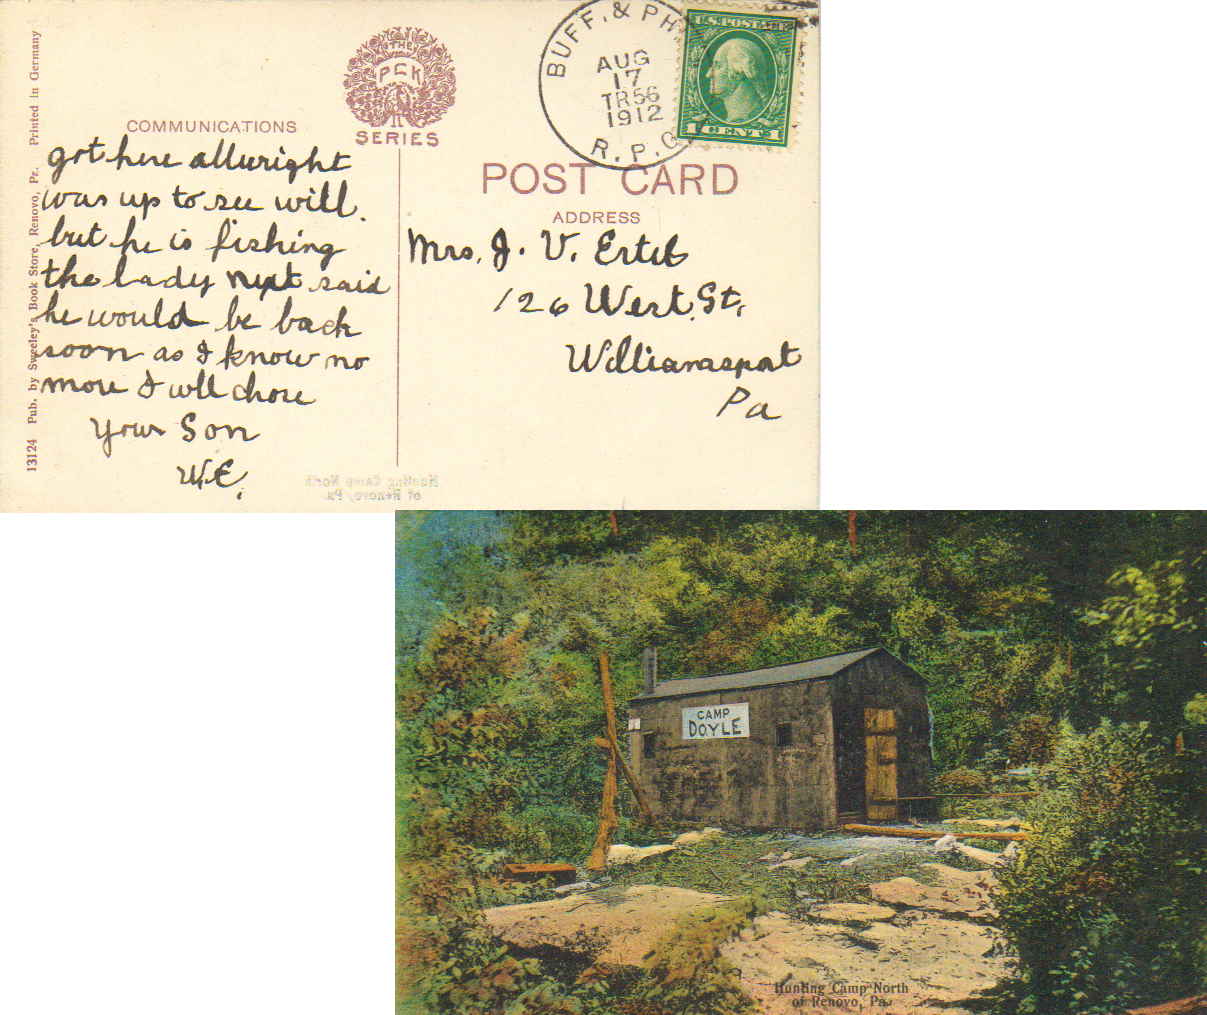 13124 Pub. by Sweeley's Book Store, Renovo, Pa. Printed in Germany
THE
PCK
SERIES
COMMUNICATIONS
got here alluright
was up to see will.
but he is fishing
the lady next said
he would be back
soon as I know no
more I will chose
Your Son
W.E.
BUFF. & PH
AUG
17
TR56
1912
R.P.O
U.S. POSTAGE
1 CENT 1
POST CARD
ADDRESS
Mrs. J. V. Ertel
126 West. St.
Williamsport
Pa
Hunting Camp North
of Renovo, Pa.
CAMP
DOYLE
Hunting Camp North
of Renovo, Pa.